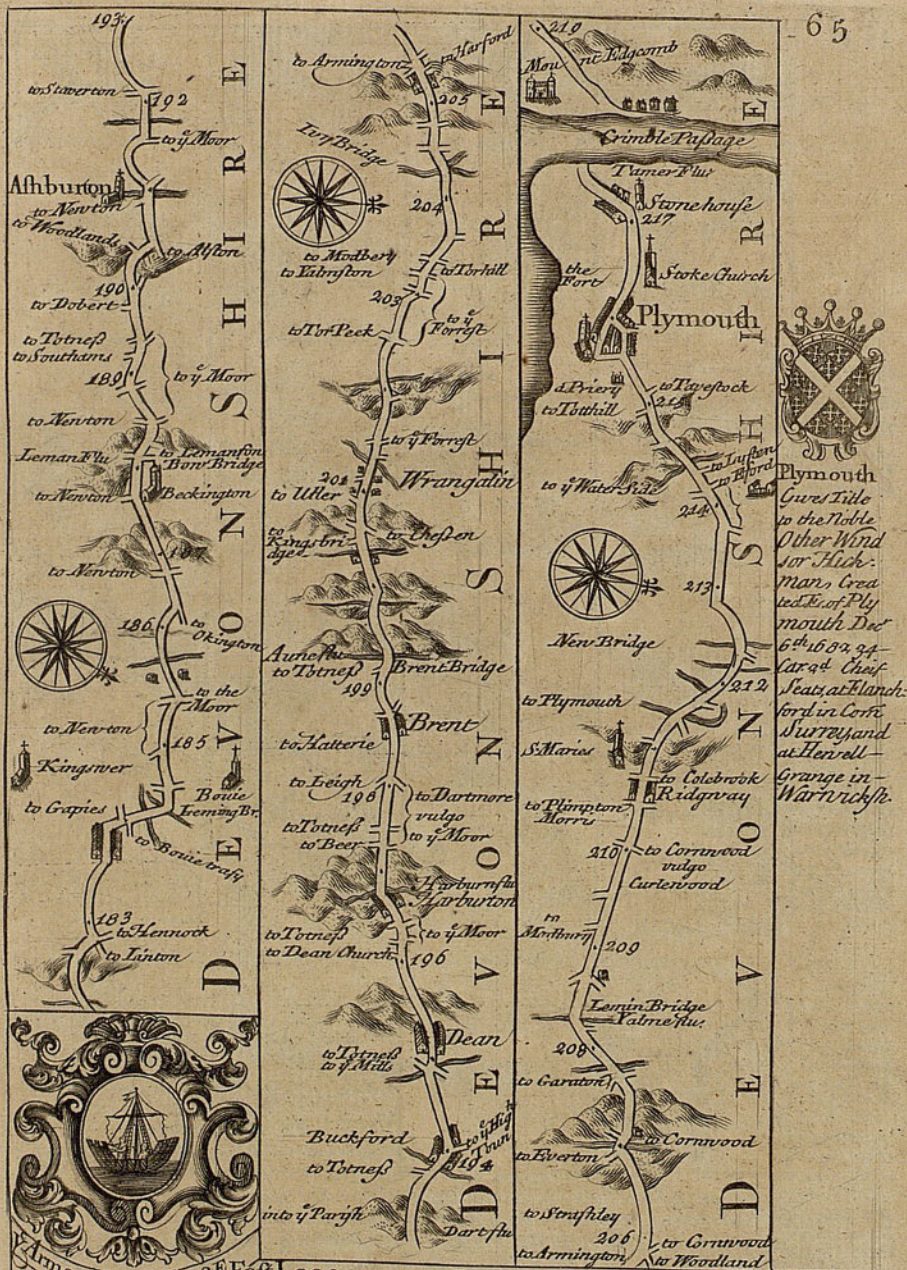 65
193
to Staverton
192
to yͤ Moor
Ashburton
to Newton
to Woodlands
to Alston
190
to Dobert
to Totneß
to Southams
189
to yͤ Moor
to Newton
Leman Flu
to Lemanson
Bow Bridge
to Newton
Beckington
187
to Newton
186
to
Okington
to the
Moor
to Newton
185
Kingswer
Bouie
Leming Br.
to Gapies
to Bouie trasy
183
to Hennock
to Linton
DEVONSHIRE
to Armington
to Harford
205
Ivy Bridge
204
to Modbery
to Yalmston
to Torhill
203
to yͤ
Forrest
to Tor Peek
to yͤ Forrest
201
Wrangalin
to Utler
to
Kingsbri
dge
to Chesten
Aune flu
to Totneß
Brent Bridge
199
Brent
to Hatterie
to Leigh
198
to Dartmore
vulgo
to yͤ Moor
to Totneß
to Beer
Harburn flu
Harburton
to Totneß
to yͤ Moor
to Dean Church
196
Dean
to Totneß
to yͤ Mills
Buckford
to yͤ Hig
Toun
194
to Totneß
into yͤ Parish
Dart flu
DEVONSHIRE
219
Mount Edgcomb
Crimble Paſsage
Tamer Flu
Stonehouse
217
the
Fort
Stoke Church
Plymouth
a Priery
to Tavestock
215
to Totthill
to Lysten
to Eford
to yͤ Water Side
214
213
New Bridge
212
to Plymouth
S. Maries
to Colebrook
Ridgway
to Plimpton
Morris
210
to Cornwood
vulgo
Curlewood
to
Modbury
209
Lemin Bridge
Yalme flu.
208
to Garaton
to Cornwood
to Everton
to Strashley
206
to Armington
to Cornwood
to Woodland
DEVONSHIRE
Plymouth
Gives Title
to the Noble
Other Wind
sor Hick-
man, Crea
ted E. of Ply
mouth Decʳ
6th 1682 34
Car. 2d Cheif
Seats, at Flanch-
ford in Com
Surrey, and
at Hewell-
Grange in-
Warwicksh.